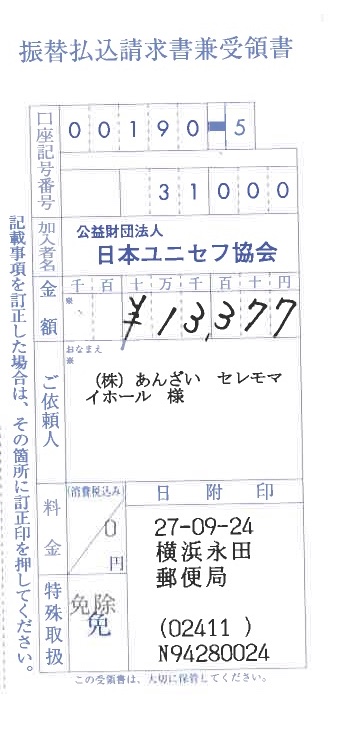 振替払込請求書兼受領書
口座記号番号
00190-5
31000
加入者名
公益財団法人
日本ユニセフ協会
金額
千百十万千百十円
※
¥13,377
ご依頼人
おなまえ
※
(株)あんざい セレモマ
イホール 様
料金
(消費税込み)
0
円
日附印
27-09-24
横浜永田
郵便局
(02411 )
N94280024
特殊取扱
免除
免
この受領書は、大切に保管してください。
記載事項を訂正した場合は、その箇所に訂正印を押してください。